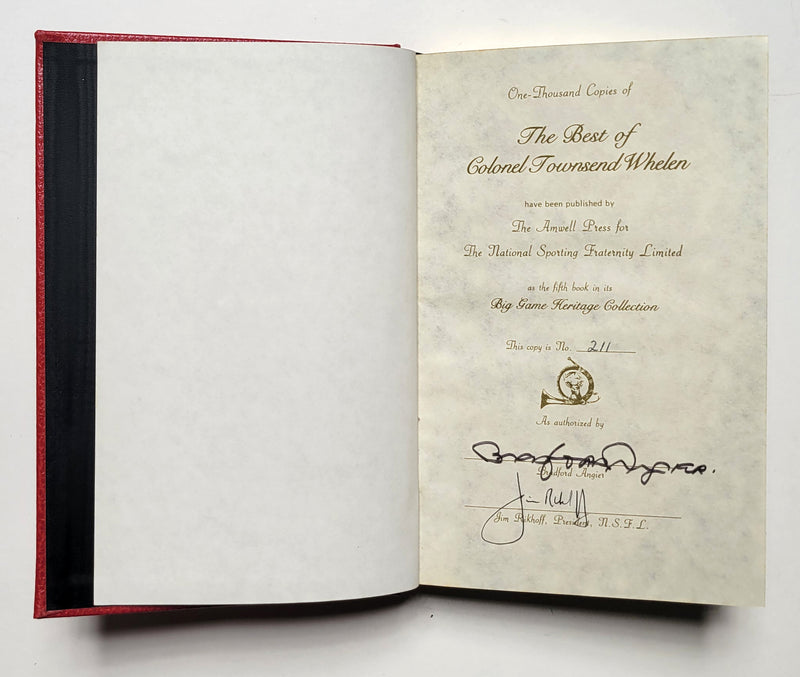 One-Thousand Copies of
The Best of
Colonel Townsend Whelen
have been published by
The Amwell Press for
The National Sporting Fraternity Limited
as the fifth book in its
Big Game Heritage Collection
This copy is No. 211
As authorized by
Bradford Angier.
Bradford Angier
Jim Rikhoff
Jim Rikhoff, President, N.S.F.L.